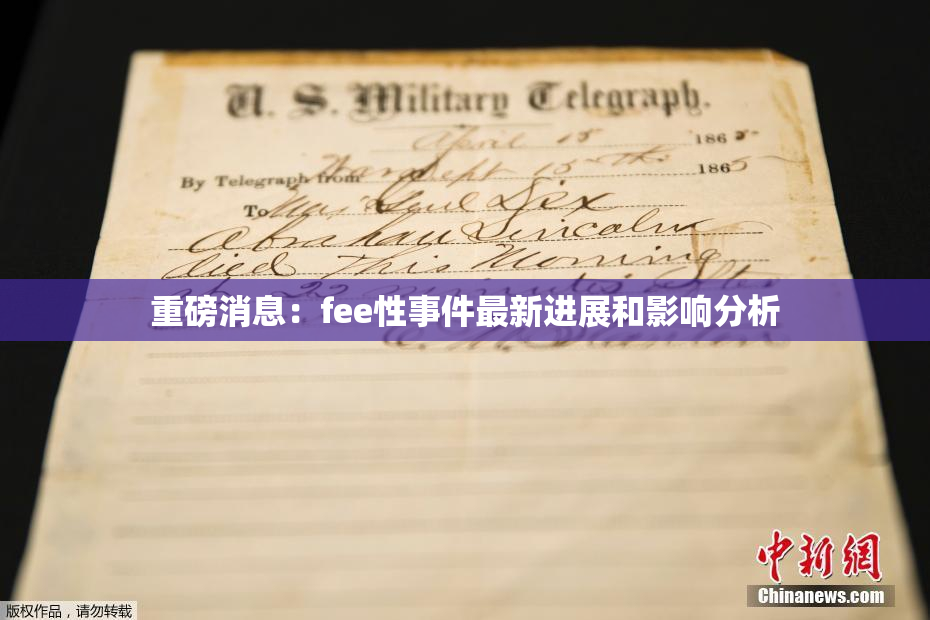 U. S. Military Telegraph.
April 15 1865
By Telegraph from War Dept 15th 1865
To Maj Genl Dix
Abraham Lincoln
died This Morning
at 22 minutes after
重磅消息：fee性事件最新进展和影响分析
E. M. Stanton
中新網
Chinanews.com
版权作品，请勿转载